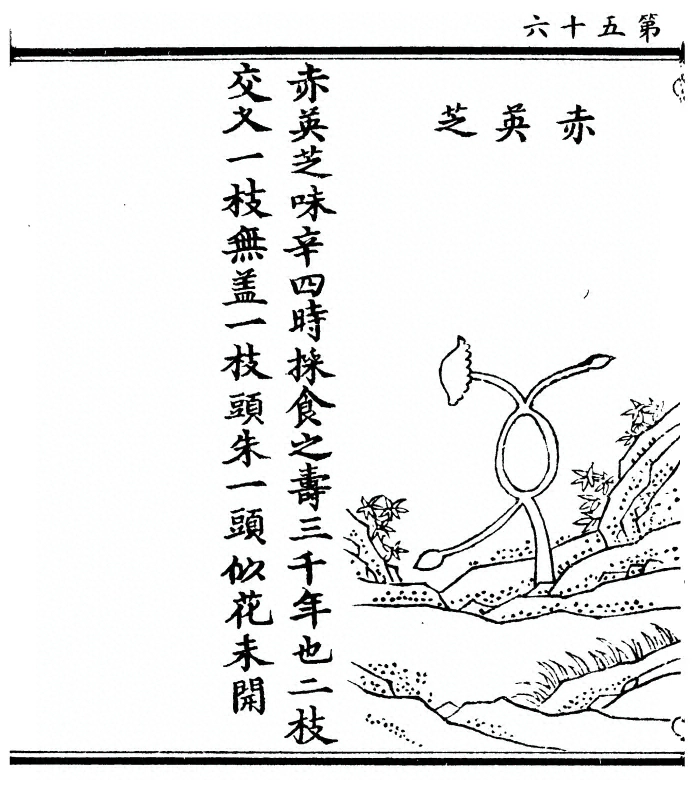 第五十六
赤英芝
赤英芝味辛四時採食之壽三千年也二枝
交叉一枝無盖一枝頭朱一頭似花未開